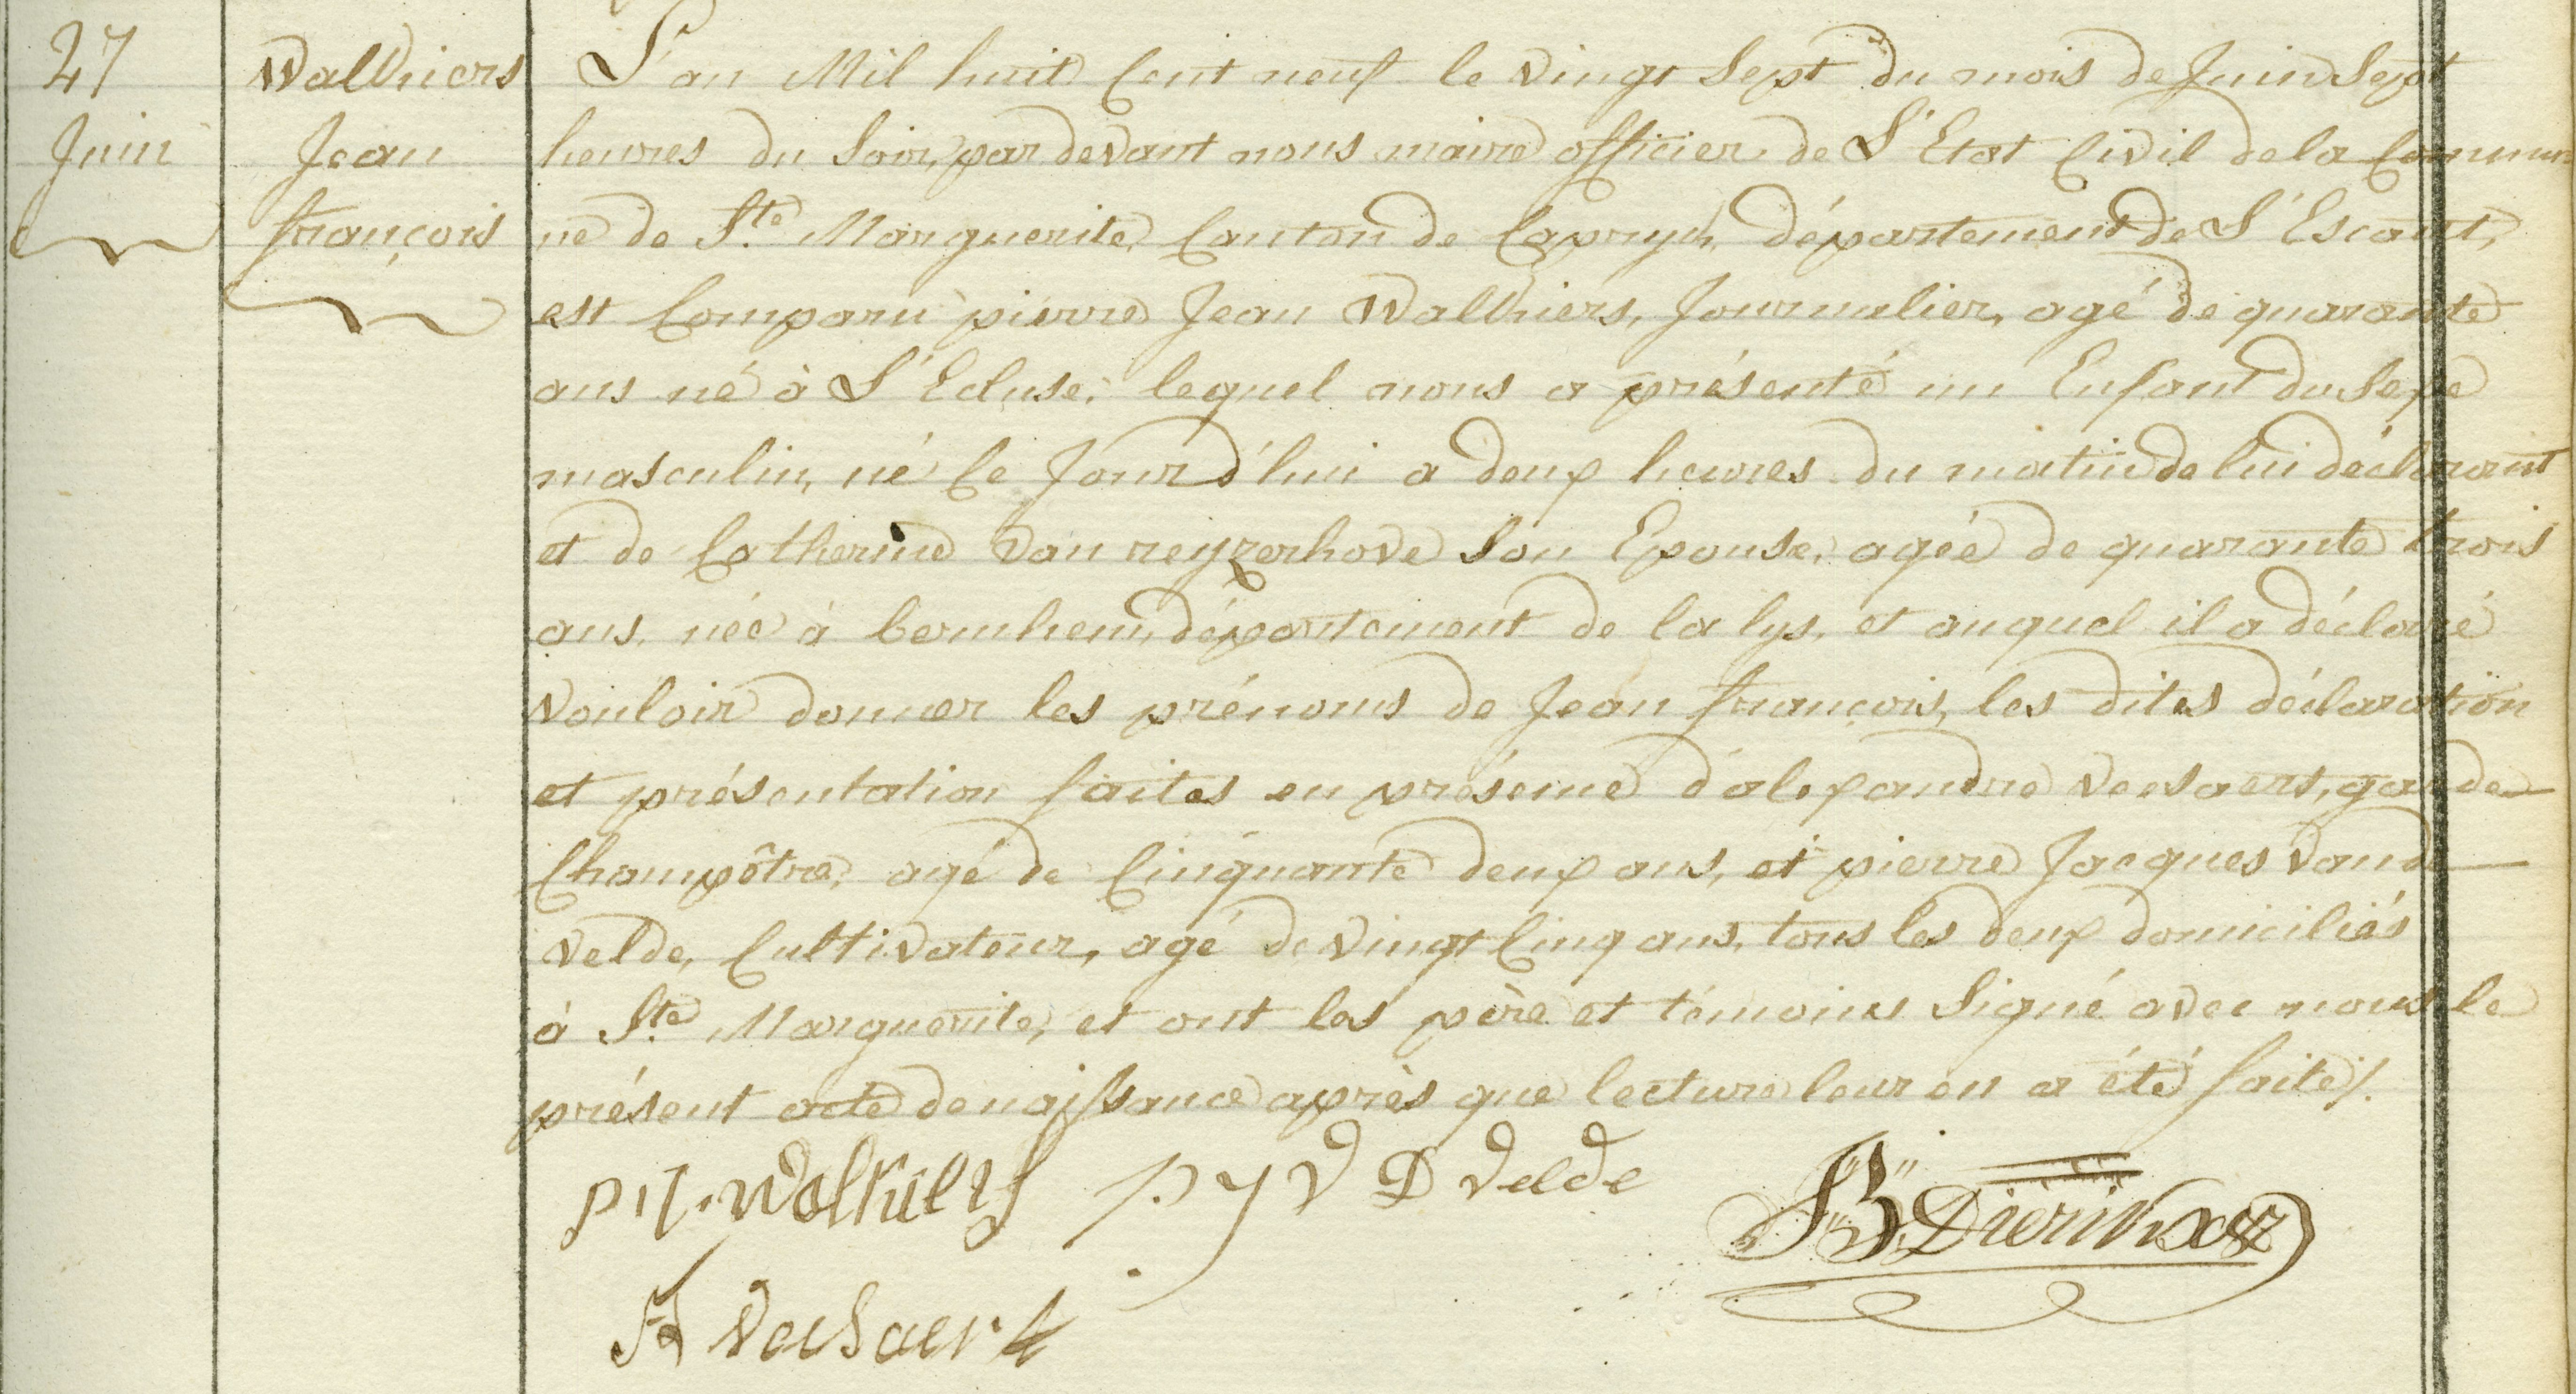 27
Juin
Walthiers
Jean
françois
L'an Mil huit Cent neuf le vingt Sept du mois de Juin Sept
heures du Soir, par devant nous maire officier de L'Etat Civil de la Commu
ne de Ste Marguerite, Canton de Capryk, département de L'Escaut,
est Comparu pierre Jean Walthiers, Journalier, agé de quarante
ans né à L'Ecluse, lequel nous a présenté un Enfant du Sexe
masculin, né Ce Jourd'hui a deux heures du matin de lui déclarant
et de Catherine van reyzerhove Son Epouse, agée de quarante trois
ans, née à bernhem, département de la lys, et auquel il a déclaré
vouloir donner les prénoms de Jean françois, les dites déclaration
et présentation faites en présence d'alexandre veesaert, garde
Champôtre, agé de Cinquante deux ans, et pierre Jacques vande
velde, Cultivateur, agé de vingt Cinq ans, tous les deux domiciliés
à Ste Marguerite, et ont les père et témoins Signé avec nous le
présent acte de naissance après que lecture leur en a été faite /.
p j V D Velde
JB Dierinckx